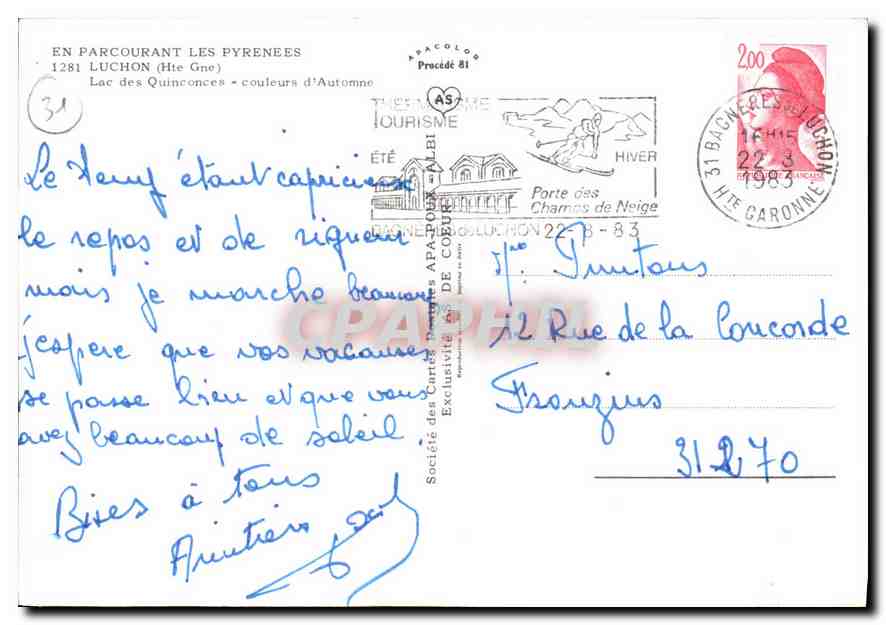 EN PARCOURANT LES PYRENEES
1281 LUCHON (Hte Gne)
Lac des Quinconces - couleurs d'Automne
31
APACOLOR
Procédé 81
AS
THERMALISME
TOURISME
ÉTÉ
HIVER
Porte des
Champs de Neige
BAGNERES DE LUCHON 22-3-83
2,00
31 BAGNERES DE LUCHON
16H15
22-3
1983
HTE GARONNE
Le temps étant capricieux
le repos et de rigueur
mais je marche beaucoup
j'espere que vos vacances
se passe bien et que vous
avez beaucoup de soleil.
Bises à tous
Société des Cartes Postales APA-POUX - ALBI
Exclusivité AS DE COEUR
CPAPHIL
12 Rue de la Concorde
31270